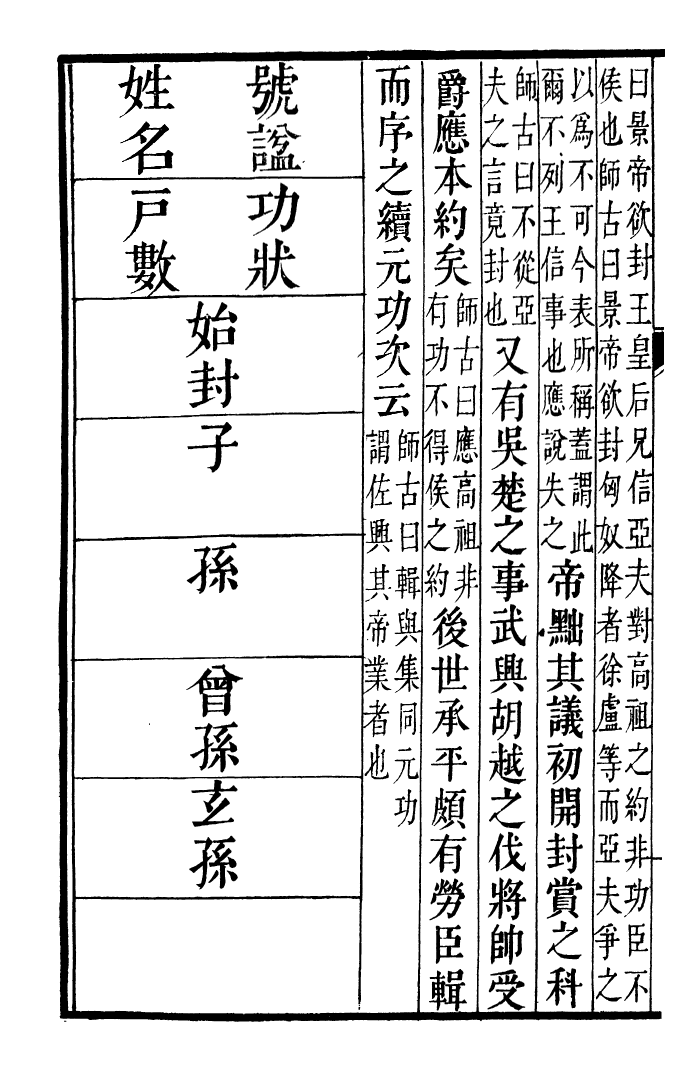 曰景帝欲封王皇后兄信亞夫對高祖之約非功臣不
侯也師古曰景帝欲封匈奴降者徐盧等而亞夫爭之
以爲不可今表所稱蓋謂此
爾不列王信事也應說失之
帝黜其議初開封賞之科
師古曰不從亞
夫之言竟封也
又有吳楚之事武興胡越之伐將帥受
爵應本約矣
師古曰應高祖非
有功不得侯之約
後世承平頗有勞臣輯
而序之續元功次云
師古曰輯與集同元功
謂佐興其帝業者也
號諡
姓名
功狀
戸數
始封
子
孫
曾孫
玄孫